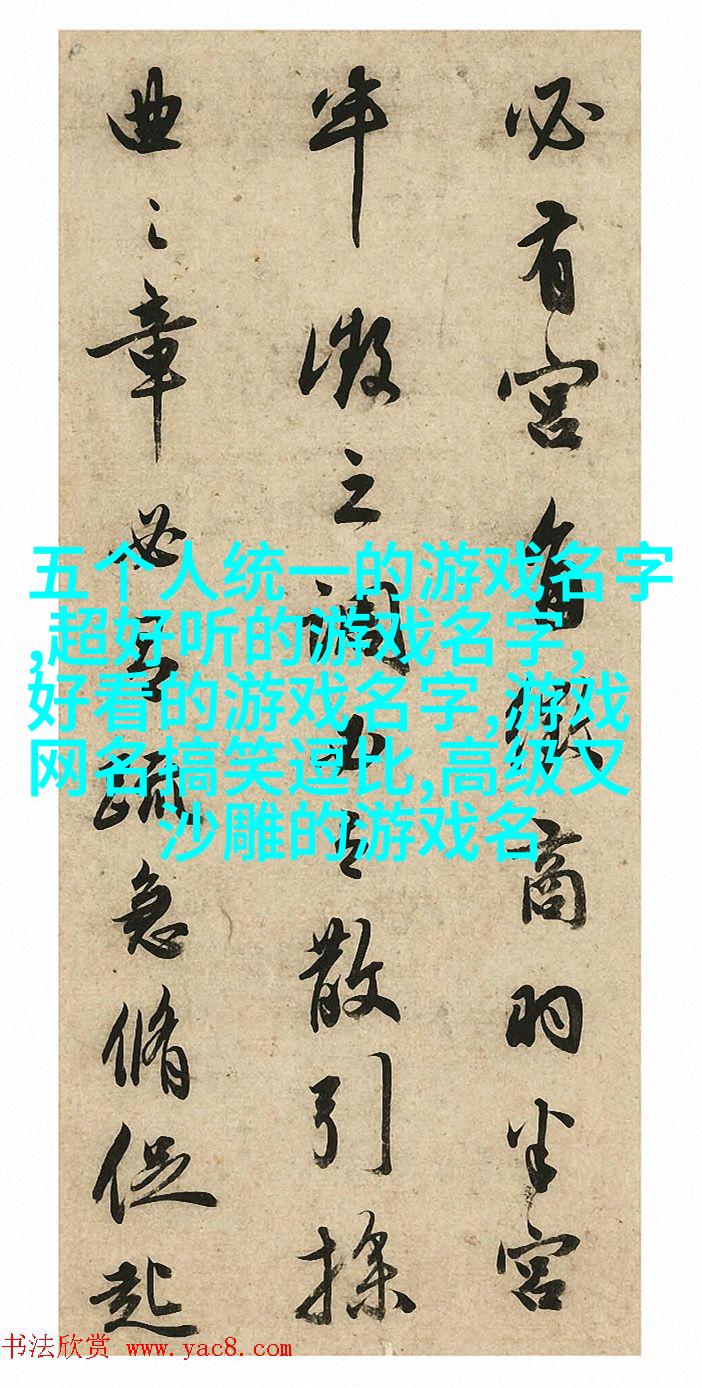 必有宫角徵商羽半宫
半徵之調散引操
曲之章必疏急脩促起
五个人统一的游戏名字
,超好听的游戏名字,
好看的游戏名字,游戏
网名搞笑逗比,高级又
沙雕的游戏名
书法欣赏 www.yac8.com